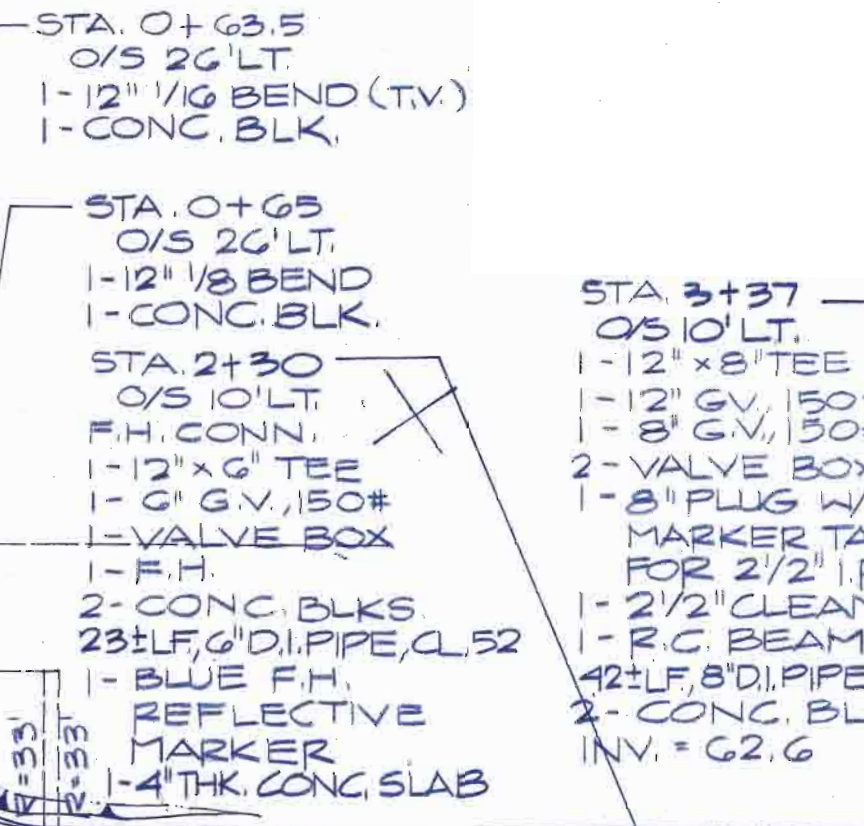 STA. 0+63.5
O/S 26' LT.
1-12" 1/16 BEND (T.V.)
1-CONC. BLK.
STA. 0+65
O/S 26' LT.
1-12" 1/8 BEND
1-CONC. BLK.
STA. 2+30
O/S 10' LT.
F.H. CONN.
1-12" x 6" TEE
1- 6" G.V., 150#
1-VALVE BOX
1- F.H.
2- CONC. BLKS.
23±LF, 6" D.I. PIPE, CL. 52
1- BLUE F.H.
REFLECTIVE
MARKER
1-4" THK. CONC. SLAB
R=33'
R=33'
STA. 3+37
O/S 10' LT.
1-12" x 8" TEE
1-12" G.V., 150
1- 8" G.V., 150
2-VALVE BOX
1- 8" PLUG W/
MARKER TA
FOR 2 1/2" I.P
1- 2 1/2" CLEAN
1- R.C. BEAM
42±LF, 8" D.I. PIPE
2- CONC. BL
INV. = 62.6